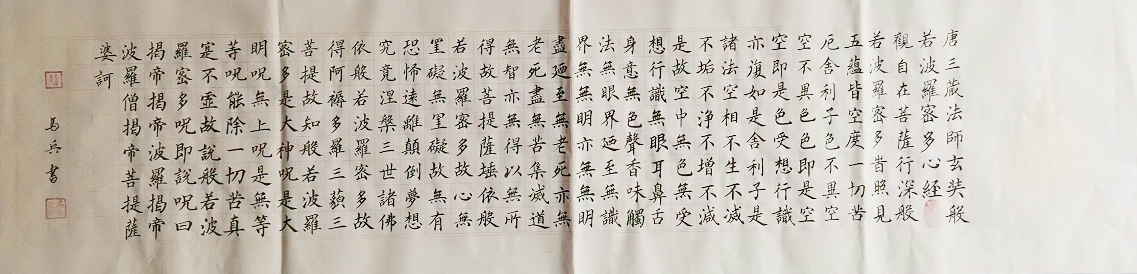 唐三藏法師玄奘般
若波羅密多心經
觀自在菩薩行深般
若波羅密多昔照見
五蘊皆空度一切苦
厄舍利子色不異空
空不異色色即是空
空即是色受想行識
亦復如是舍利子是
諸法空相不生不滅
不垢不淨不增不減
是故空中無色無受
想行識無眼耳鼻舌
身意無色聲香味觸
法無無眼界廼至無識
界無無明亦無無明
盡廼至無老死亦無
老死盡無苦集滅道
無智亦無得以無所
得故菩提薩埵依般
若波羅密多故心無
罣礙無罣礙故無有
恐怖遠離顛倒夢想
究竟涅槃三世諸佛
依般若波羅密多故
得阿褥多羅三藐三
菩提故知般若波羅
密多是大神呪是大
明呪無上呪是無等
等呪能除一切苦真
寔不虛故說般若波
羅密多呪即說呪曰
揭帝揭帝波羅揭帝
波羅僧揭帝菩提薩
婆訶
馬兵書